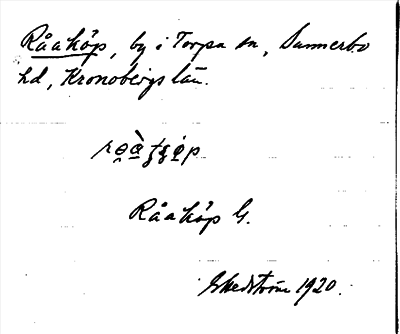 Råaköp, by i Torpa sn, Sunnerbo
hd, Kronobergs län.
Råaköp G.
Ekedström 1920.